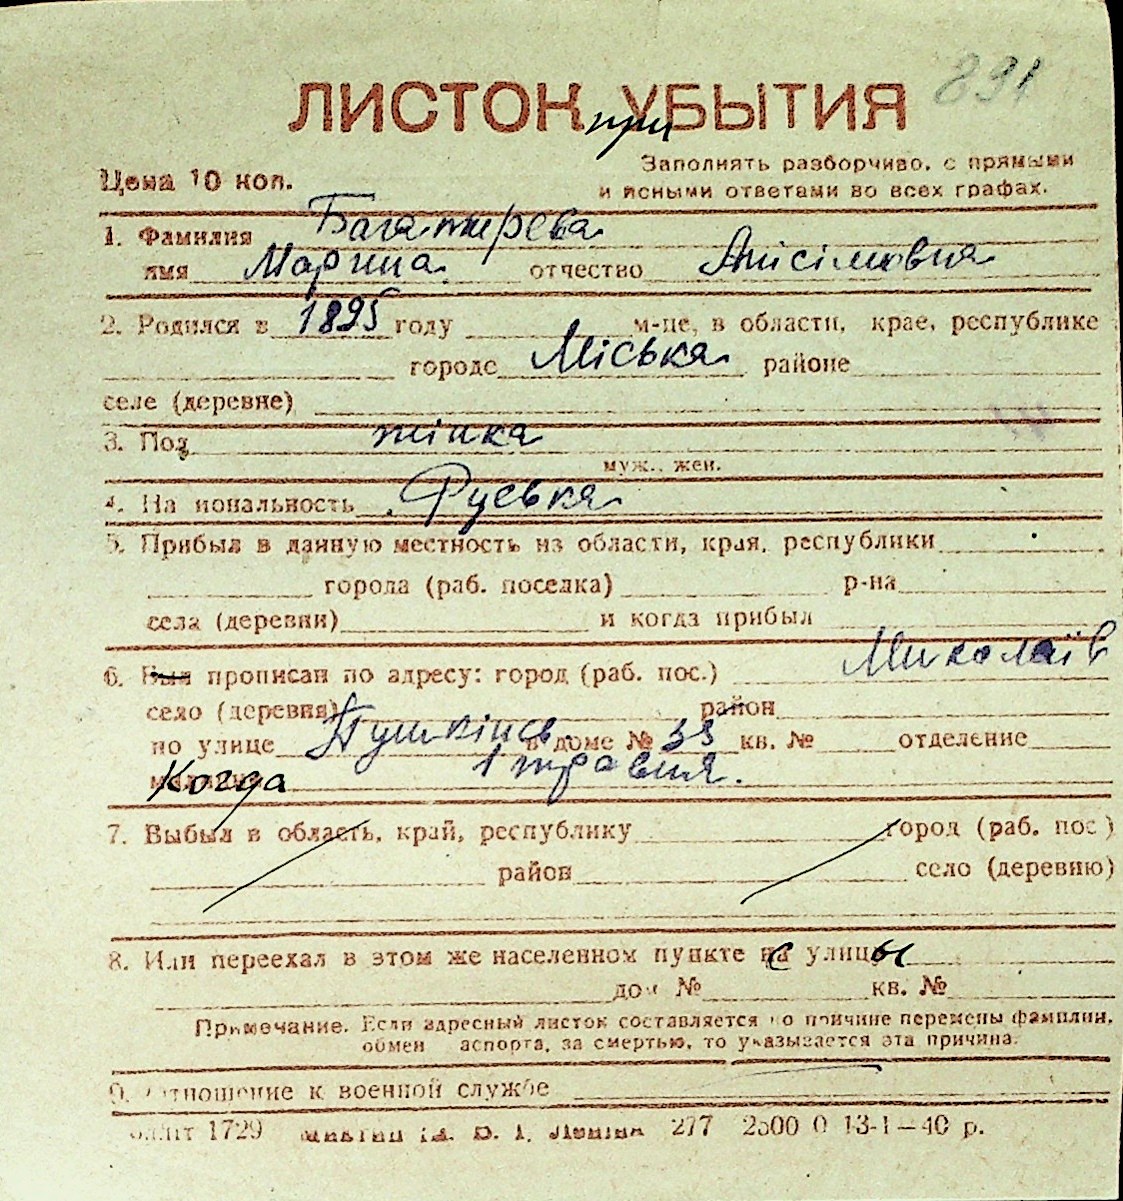 891
ЛИСТОК УБЫТИЯ
при
Цена 10 коп.
Заполнять разборчиво, с прямыми
и ясными ответами во всех графах.
1. Фамилия Багатирева
имя Марина отчество Анісімовна
2. Родился в 1895 году м-це, в области, крае, республике
городе Міська районе
селе (деревне)
3. Пол жінка
муж., жен.
4. Национальность Руська
5. Прибыл в данную местность из области, края, республики
города (раб. поселка) р-на
села (деревни) и когда прибыл
6. Был прописан по адресу: город (раб. пос.) Миколаїв
село (деревня) район
по улице Пушкінсь. в доме № 33 кв. № отделение
Когда 1 травня.
7. Выбыл в область, край, республику город (раб. пос.)
район село (деревню)
8. Или переехал в этом же населенном пункте с улицы
дом № кв. №
Примечание. Если адресный листок составляется по причине перемены фамилии,
обмен паспорта, за смертью, то указывается эта причина.
9. Отношение к военной службе
1729 277 2500 0 13-1—40 р.